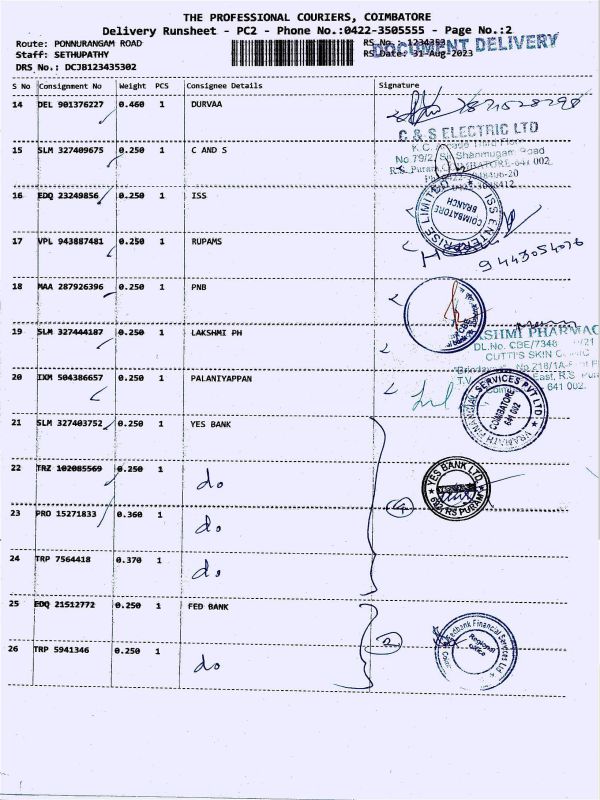 THE PROFESSIONAL COURIERS, COIMBATORE
Delivery Runsheet - PC2 - Phone No.:0422-3505555 - Page No.:2
Route: PONNURANGAM ROAD
Staff: SETHUPATHY
DRS No.: DCJB123435302
RS Date: 31-Aug-2023
DOCUMENT DELIVERY
S No Consignment No Weight PCS Consignee Details Signature
14 DEL 901376227 0.460 1 DURVAA
C & S ELECTRIC LTD
15 SLM 327409675 0.250 1 C AND S
16 EDQ 23249856 0.250 1 ISS
ISS ENTERPRISE LIMITED
COIMBATORE
BRANCH
17 VPL 943887481 0.250 1 RUPAMS
9443054076
18 MAA 287926396 0.250 1 PNB
19 SLM 327444187 0.250 1 LAKSHMI PH
DL.No. CBE/7348
CUTTI'S SKIN
20 IXM 504386657 0.250 1 PALANIYAPPAN
641 002.
FINANCIAL SERVICES PVT LTD
COIMBATORE
641 002
21 SLM 327403752 0.250 1 YES BANK
22 TRZ 102085569 0.250 1 do
YES BANK LTD.
RS PURAM
4
23 PRO 15271833 0.360 1 do
24 TRP 7564418 0.370 1 do
25 EDQ 21512772 0.250 1 FED BANK
Fedbank Financial Services Ltd
Regional
Office
2
26 TRP 5941346 0.250 1 do